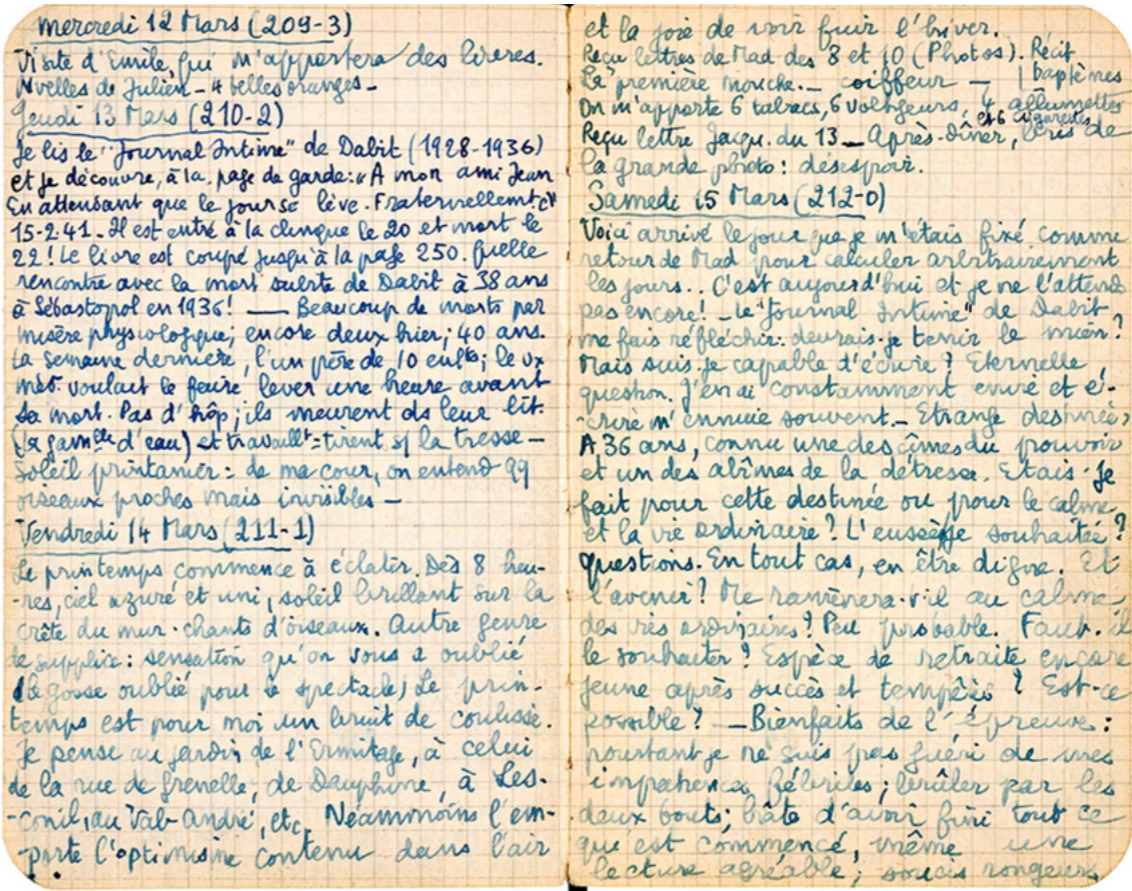 Mercredi 12 Mars (209-3)
Visite d'Emile, qui m'apportera des livres.
Nvelles de Julien - 4 belles oranges -
Jeudi 13 Mars (210-2)
Je lis le "Journal Intime" de Dabit (1928-1936)
et je découvre, à la page de garde: "A mon ami Jean
En attendant que le jour se lève. Fraternellemt.
15-2-41. Il est entré à la clinique le 20 et mort le
22! Le livre est coupé jusqu'à la page 250. Quelle
rencontre avec la mort subite de Dabit à 38 ans
à Sébastopol en 1936! — Beaucoup de morts par
misère physiologique; encore deux hier; 40 ans.
La semaine dernière, l'un père de 10 enfts; le vx
méd. voulait le faire lever une heure avant
sa mort. Pas d'hôp; ils meurent ds leur lit.
d'eau) et travaillt = tirent s/ la tresse —
Soleil printanier: de ma cour, on entend qq
oiseaux proches mais invisibles —
Vendredi 14 Mars (211-1)
Le printemps commence à éclater. Dès 8 heu-
-res, ciel azuré et uni, soleil brillant sur la
crête du mur - chants d'oiseaux. Autre genre
de supplice: sensation qu'on vous a oublié
(le gosse oublié pour le spectacle) Le prin-
temps est pour moi un bruit de coulisse.
Je pense au jardin de l'Ermitage, à celui
de la rue de Grenelle, de Dauphine, à Les-
-conil, au Val-André, etc. Néammoins l'em-
-porte l'optimisme contenu dans l'air
et la joie de voir fuir l'hiver.
Reçu lettres de Mad des 8 et 10 (Photos). Récit
La première mouche. - coiffeur - baptêmes
On m'apporte 6 tabacs, 6 voltigeurs, 4 allumettes
et 6 cigarettes
Reçu lettre Jacqu. du 13 — Après-Dîner, bris de
la grande photo: désespoir.
Samedi 15 Mars (212-0)
Voici arrivé le jour que je m'étais fixé comme
retour de Mad pour calculer arbitrairement
les jours.. C'est aujourd'hui et je ne l'attends
pas encore! - Le "Journal Intime" de Dabit
me fais réfléchir: devrais-je tenir le mien?
Mais suis-je capable d'écrire? Eternelle
question. J'en ai constamment envie et é-
-crire m'ennuie souvent. - Etrange destinée,
A 36 ans, connu une des cîmes du pouvoir
et un des abîmes de la détresse. Etais-je
fait pour cette destinée ou pour le calme
et la vie ordinaire? L'eussé-je souhaitée?
questions. En tout cas, en être digne. Et
l'avenir? Me ramènera-t-il au calme
des vies ordinaires? Peu probable. Faut-il
le souhaiter? Espèce de retraite encore
jeune après succès et tempêtes? Est-ce
possible? — Bienfaits de l'épreuve:
pourtant je ne suis pas guéri de mes
impatiences, fébriles; brûler par les
deux bouts; hâte d'avoir fini tout ce
qui est commencé, même une
lecture agréable; soucis rongeurs,